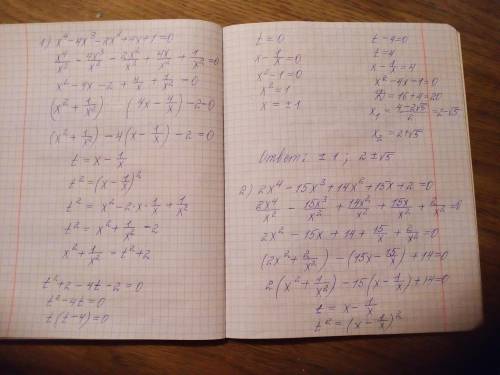 1) x⁴-4x³-2x²+4x+1=0
x⁴/x² - 4x³/x² - 2x²/x² + 4x/x² + 1/x² = 0
x²-4x-2+4/x+1/x²=0
(x²+1/x²) (4x-4/x)-2=0
(x²+1/x²)-4(x-1/x)-2=0
t=x-1/x
t²=(x-1/x)²
t²=x²-2·x·1/x+1/x²
t²=x²+1/x²-2
x²+1/x²=t²+2
t²+2-4t-2=0
t²-4t=0
t(t-4)=0
t=0
x-1/x=0
x²-1=0
x²=1
x=±1
t-4=0
t=4
x-1/x=4
x²-4x-1=0
D=16+4=20
x₁=(4-2√5)/2=2-√5
x₂=2+√5
Ответ: ±1; 2±√5
2) 2x⁴-15x³+14x²+15x+2=0
2x⁴/x² - 15x³/x² + 14x²/x² + 15x/x² + 2/x² = 0
2x²-15x+14+15/x+2/x²=0
(2x²+2/x²)-(15x-15/x)+14=0
2(x²+1/x²)-15(x-1/x)+14=0
t=x-1/x
t²=(x-1/x)²